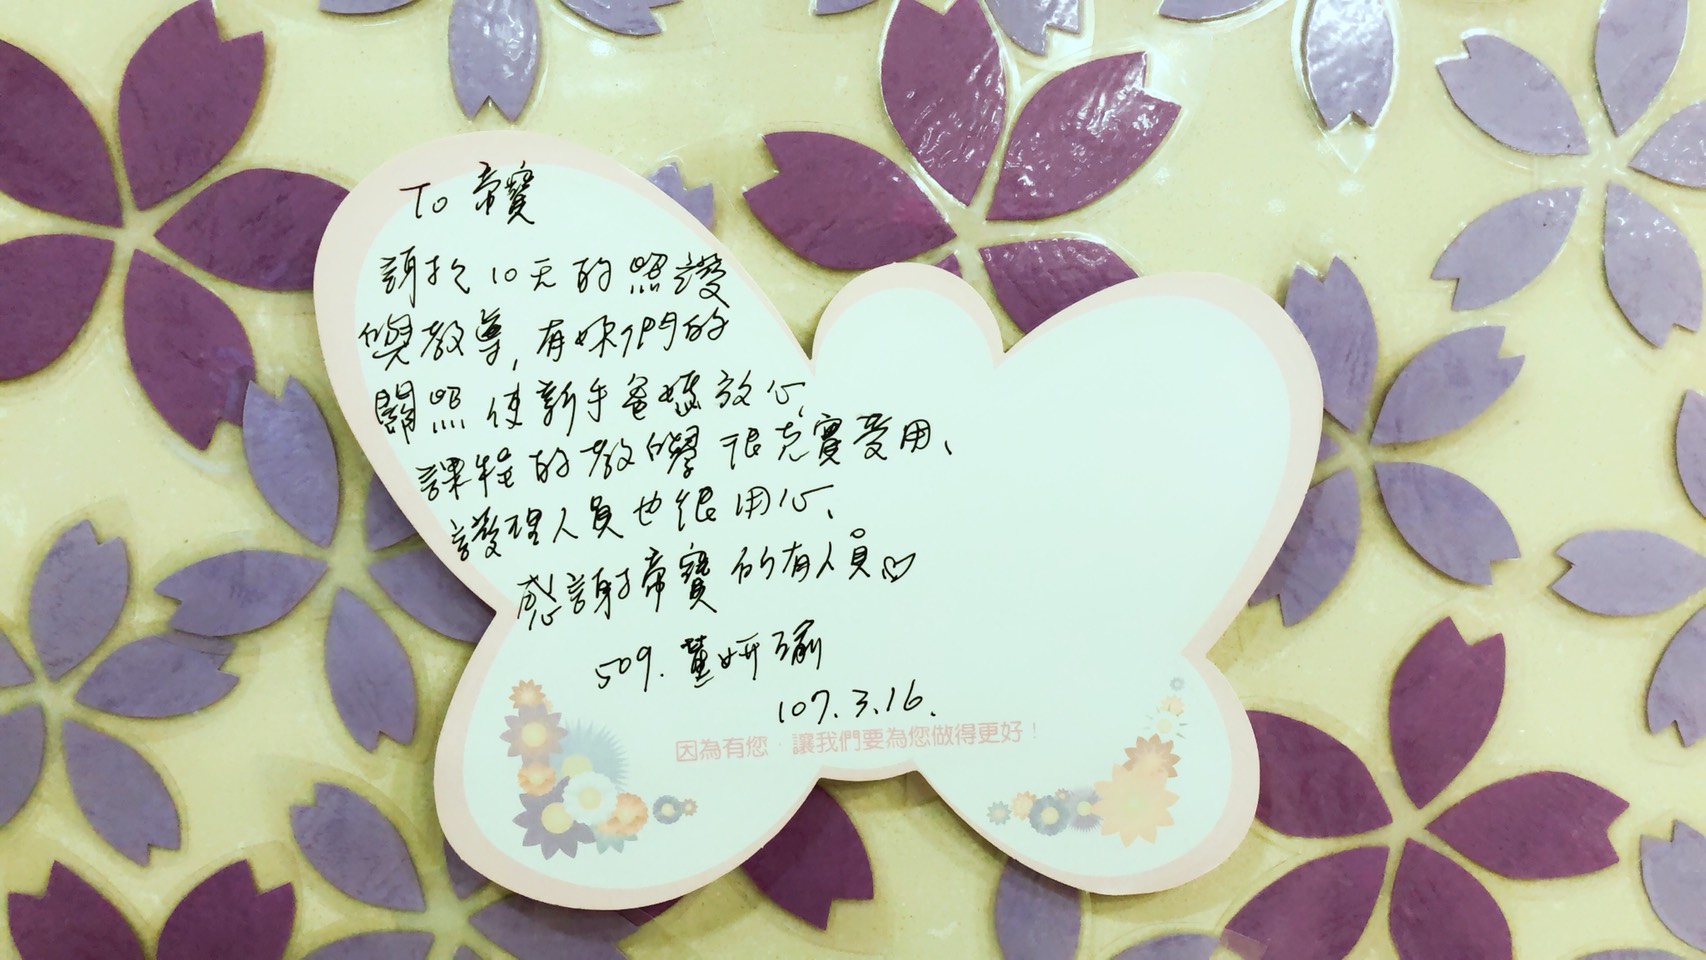 To 帝寶
謝於10天的照護
與教導，有妳們的
關照使新手爸媽放心、
課程的教學很充實受用、
護理人員也很用心、
感謝帝寶的有人員♡
509. 董妍瑜
107.3.16.
因為有您‧讓我們要為您做得更好！